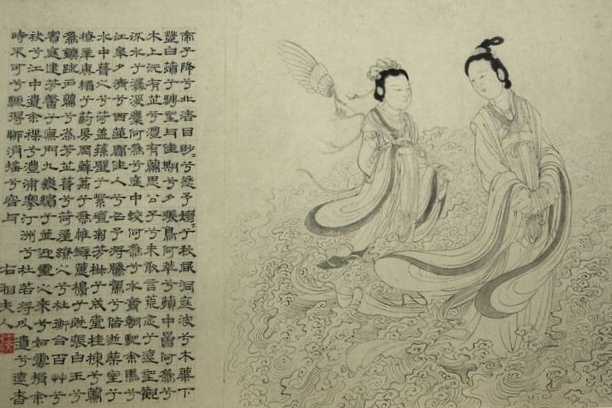 帝子降兮北渚目眇眇兮愁予嫋嫋兮秋風洞庭波兮木葉下
登白薠兮騁望與佳期兮夕張鳥何萃兮蘋中罾何為兮
木上沅有芷兮澧有蘭思公子兮未敢言荒忽兮遠望觀
流水兮潺湲麋何為兮庭中蛟何為兮水裔朝馳余馬兮
江皋夕濟兮西澨聞佳人兮召予將騰駕兮偕逝築室兮
水中葺之兮荷蓋蓀壁兮紫壇匊芳椒兮成堂桂棟兮蘭
橑辛夷楣兮葯房罔薜荔兮為帷擗蕙櫋兮既張白玉兮
為鎮疏石蘭兮為芳芷葺兮荷屋繚之兮杜衡合百艸兮
實庭建芳馨兮廡門九嶷繽兮並迎靈之來兮如雲捐余
袂兮江中遺余褋兮澧浦搴汀洲兮杜若將以遺兮遠者
時不可兮驟得聊逍遙兮容與
右湘夫人